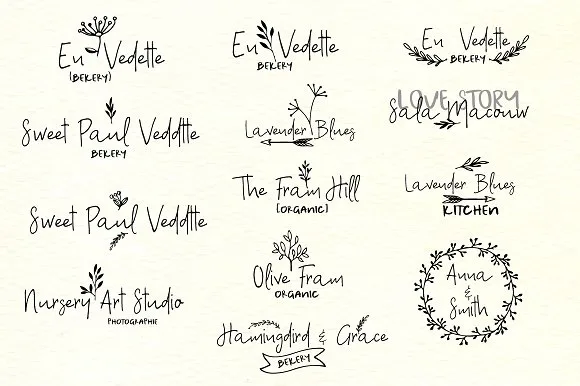 En Vedette
(BEKERY)
Sweet Paul Veddtte
BEKERY
Sweet Paul Veddtte
Nursery Art Studio
PHOTOGRAPHIE
En Vedette
BEKERY
Lavender Blues
The Fram Hill
(ORGANIC)
Olive Fram
ORGANIC
Hamingdird & Grace
BEKERY
En Vedette
BEKERY
LOVE STORY
Sala Macouw
Lavender Blues
KITCHEN
Anna
&
Smith